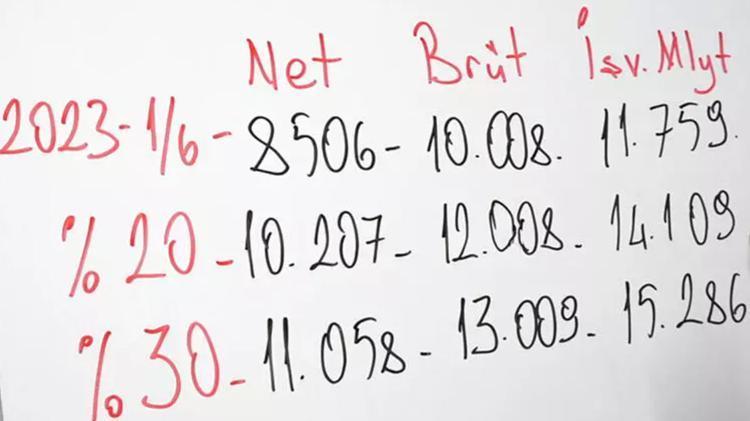 Net Brüt İsv. Mlyt
2023-1/6-8506-10.008. 11.759.
%20-10.207-12.008-14.109
%30-11.058-13.009-15.286